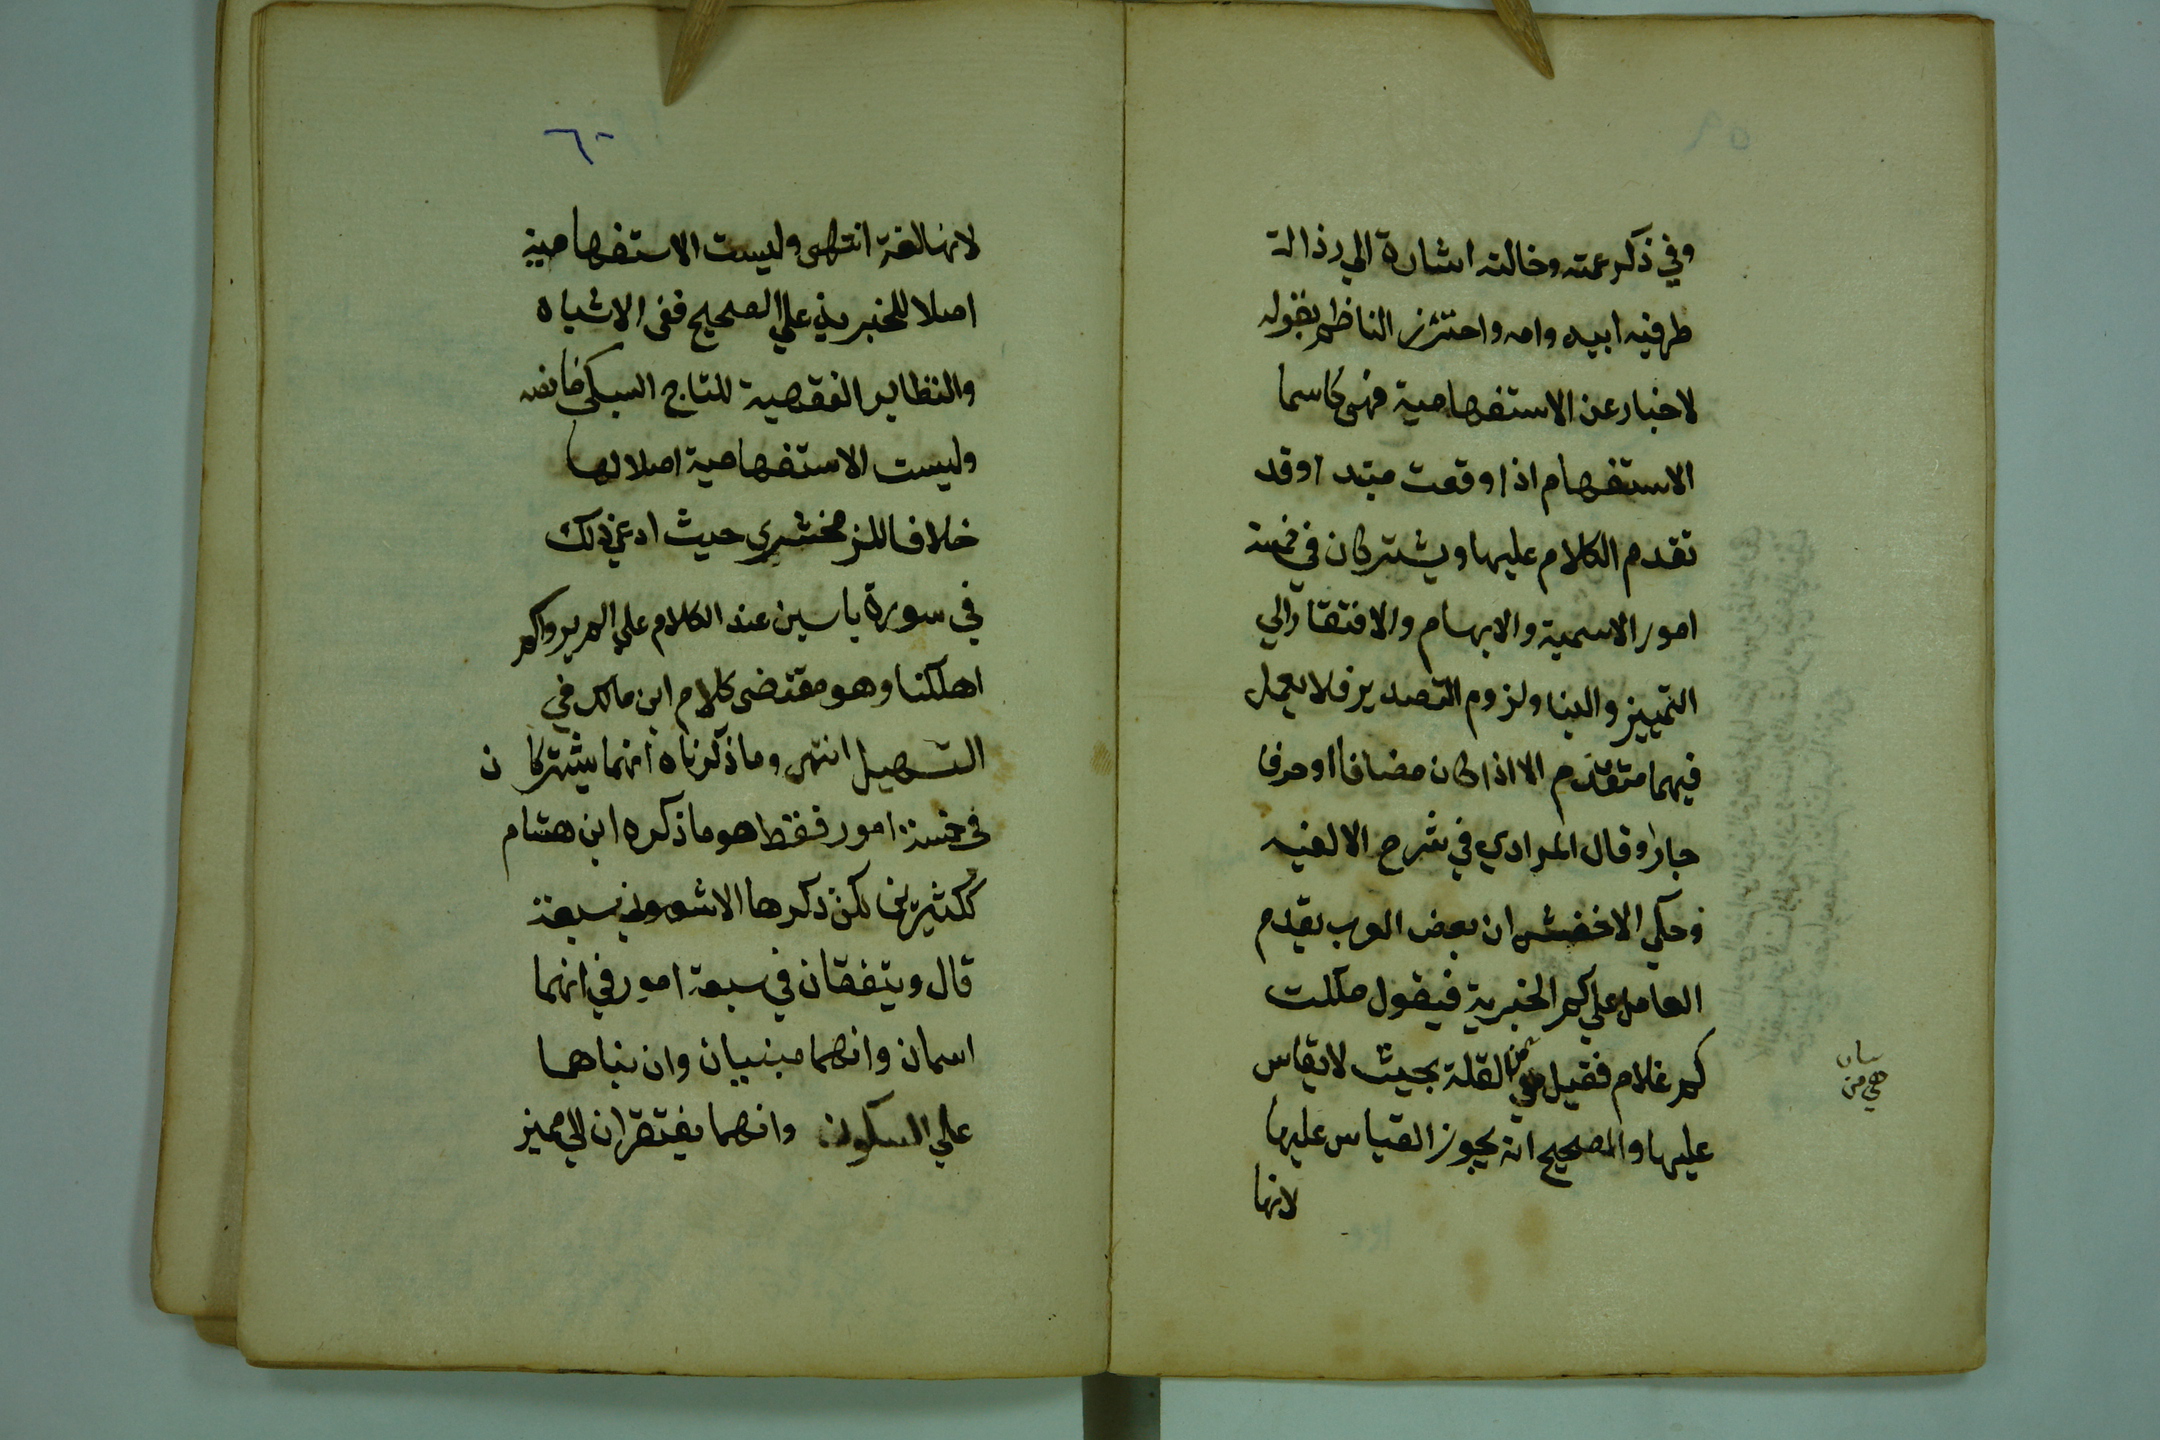 وفي ذكر عمته وخالته اشارة الي رذالة
طرفيه ابيه وامه واحترز الناظم بقوله
لاخبار عن الاستفهامية فهي كاسما
الاستفهام اذا وقعت مبتدا وقد
تقدم الكلام عليها ويشتركان في خمسة
امور الاسمية والابهام والافتقار الي
التمييز والبنا ولزوم التصدير فلا يعمل
فيهما متقدم الا اذا كان مضافا او حرفا
جارا وقال المرادي في شرح الالفيه
وحكي الاخفش ان بعض العرب يقدم
العامل علي كم الخبرية فيقول ملكت
كم غلام فقيل من القلة بحيث لا يقاس
هي من
عليها والصحيح انه يجوز القياس عليها
لانها
٦٠
لانها لغة انتهى وليست الاستفهامية
اصلا للخبرية علي الصحيح ففى الاشباه
والنظاير الفقهية للتاج السبكي ما نصه
وليست الاستفهامية اصلا لها
خلافا للزمخشري حيث ادعي ذلك
في سورة ياسين عند الكلام علي الم يروا كم
اهلكنا وهو مقتضى كلام ابن مالك في
التسهيل انتهى وما ذكرناه انهما يشتركان
فى خمسة امور فقط هو ما ذكره ابن هشام
ككثيرين لكن ذكرها الاشموني سبعة
قال ويتفقان في سبعة امور في انهما
اسمان وانهما مبنيان وان بناهما
علي السكون وانهما يفتقران الي مميز